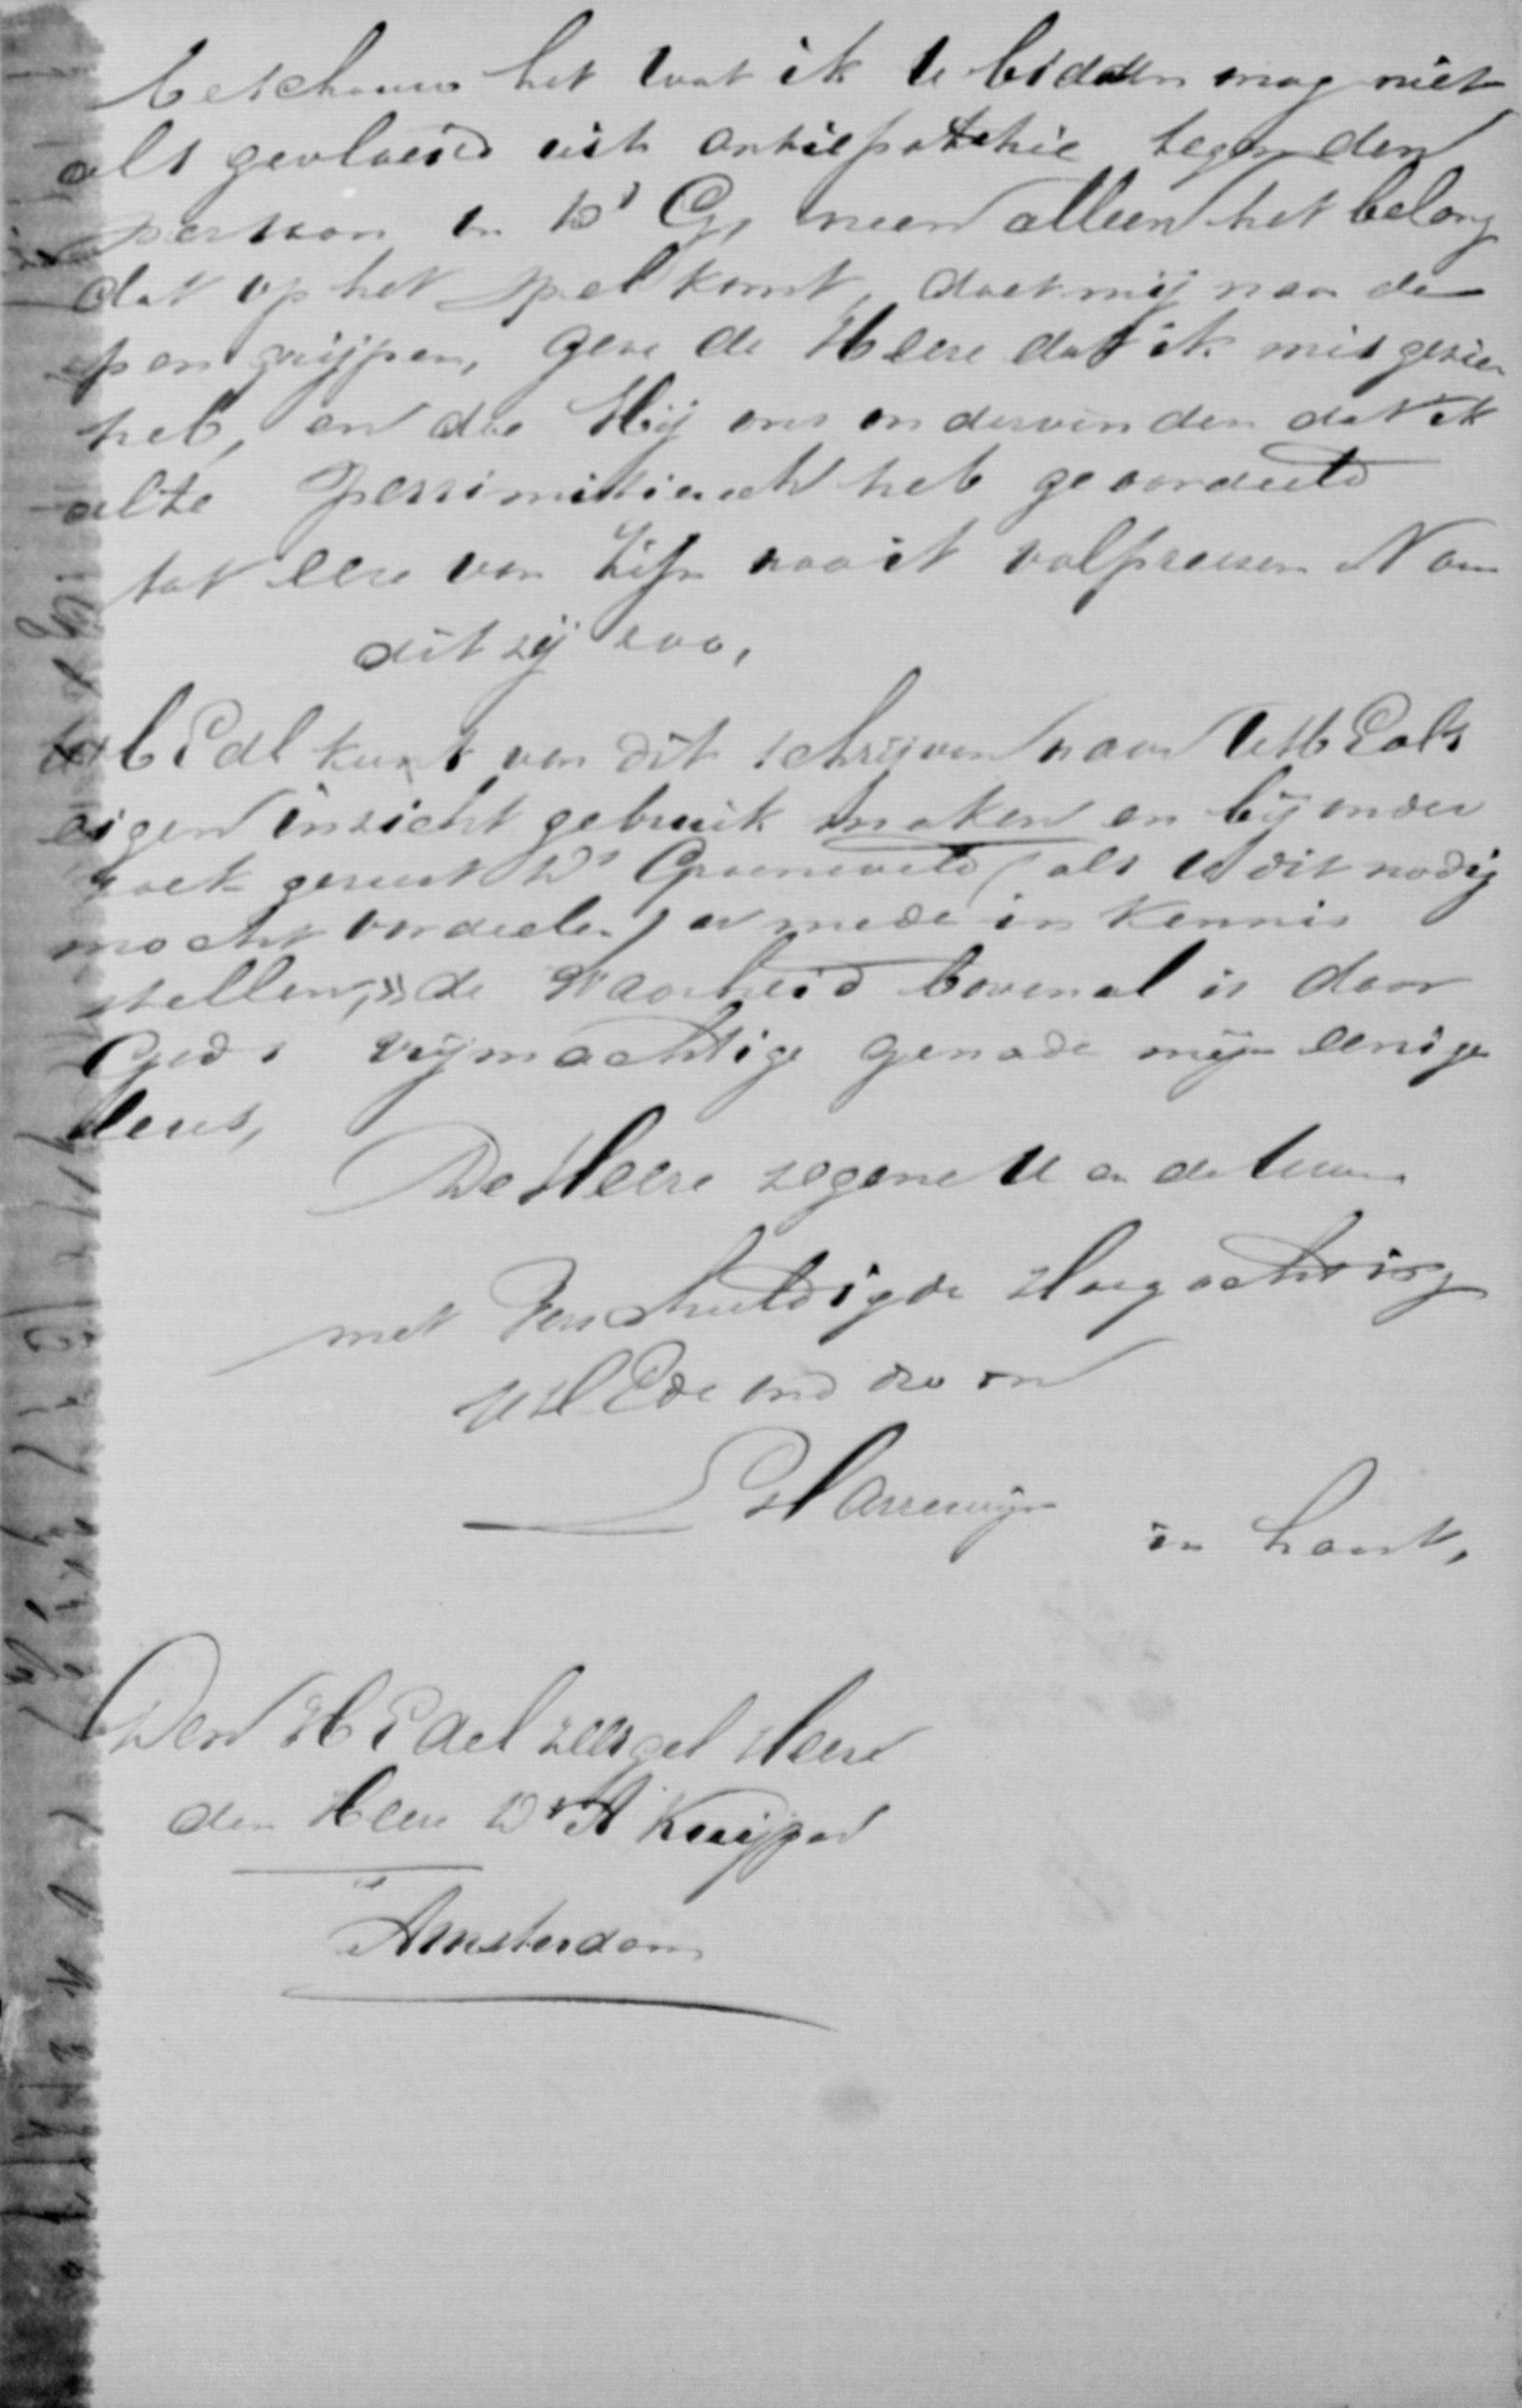 beschouw het wat ik U bidden mag niet
als gevloeid uit antiepathie tegen den
persoon v. Ds G, neen alleen het belang
dat op het spel komt, doet mij naar de
pen grijpen, geve de Heere dat ik misgezien
heb, en doe Hij ons ondervinden dat ik
alte Pessimistisch heb geoordeeld
tot eere van Zijn nooit volpreesen Naam
dit zij zoo,
HEdl kunt van dit schrijven naar UHEdls
eigen inzicht gebruik maken en bij onder
zoek gerust Ds Groeneveld (als U dit nodig
mocht oordeelen) er mede in Kennis
stellen, de Waarheid bovenal is door
Gods vrijmachtige genade mijn eenige
leus,
De Heere zegene U en de Uwen
met Verschuldigde Hoogachting
UHEde ond
Harrewijn
in haast,
Den HEdel zeergel Heere
den Heere Dr A Kuijper
Amsterdam